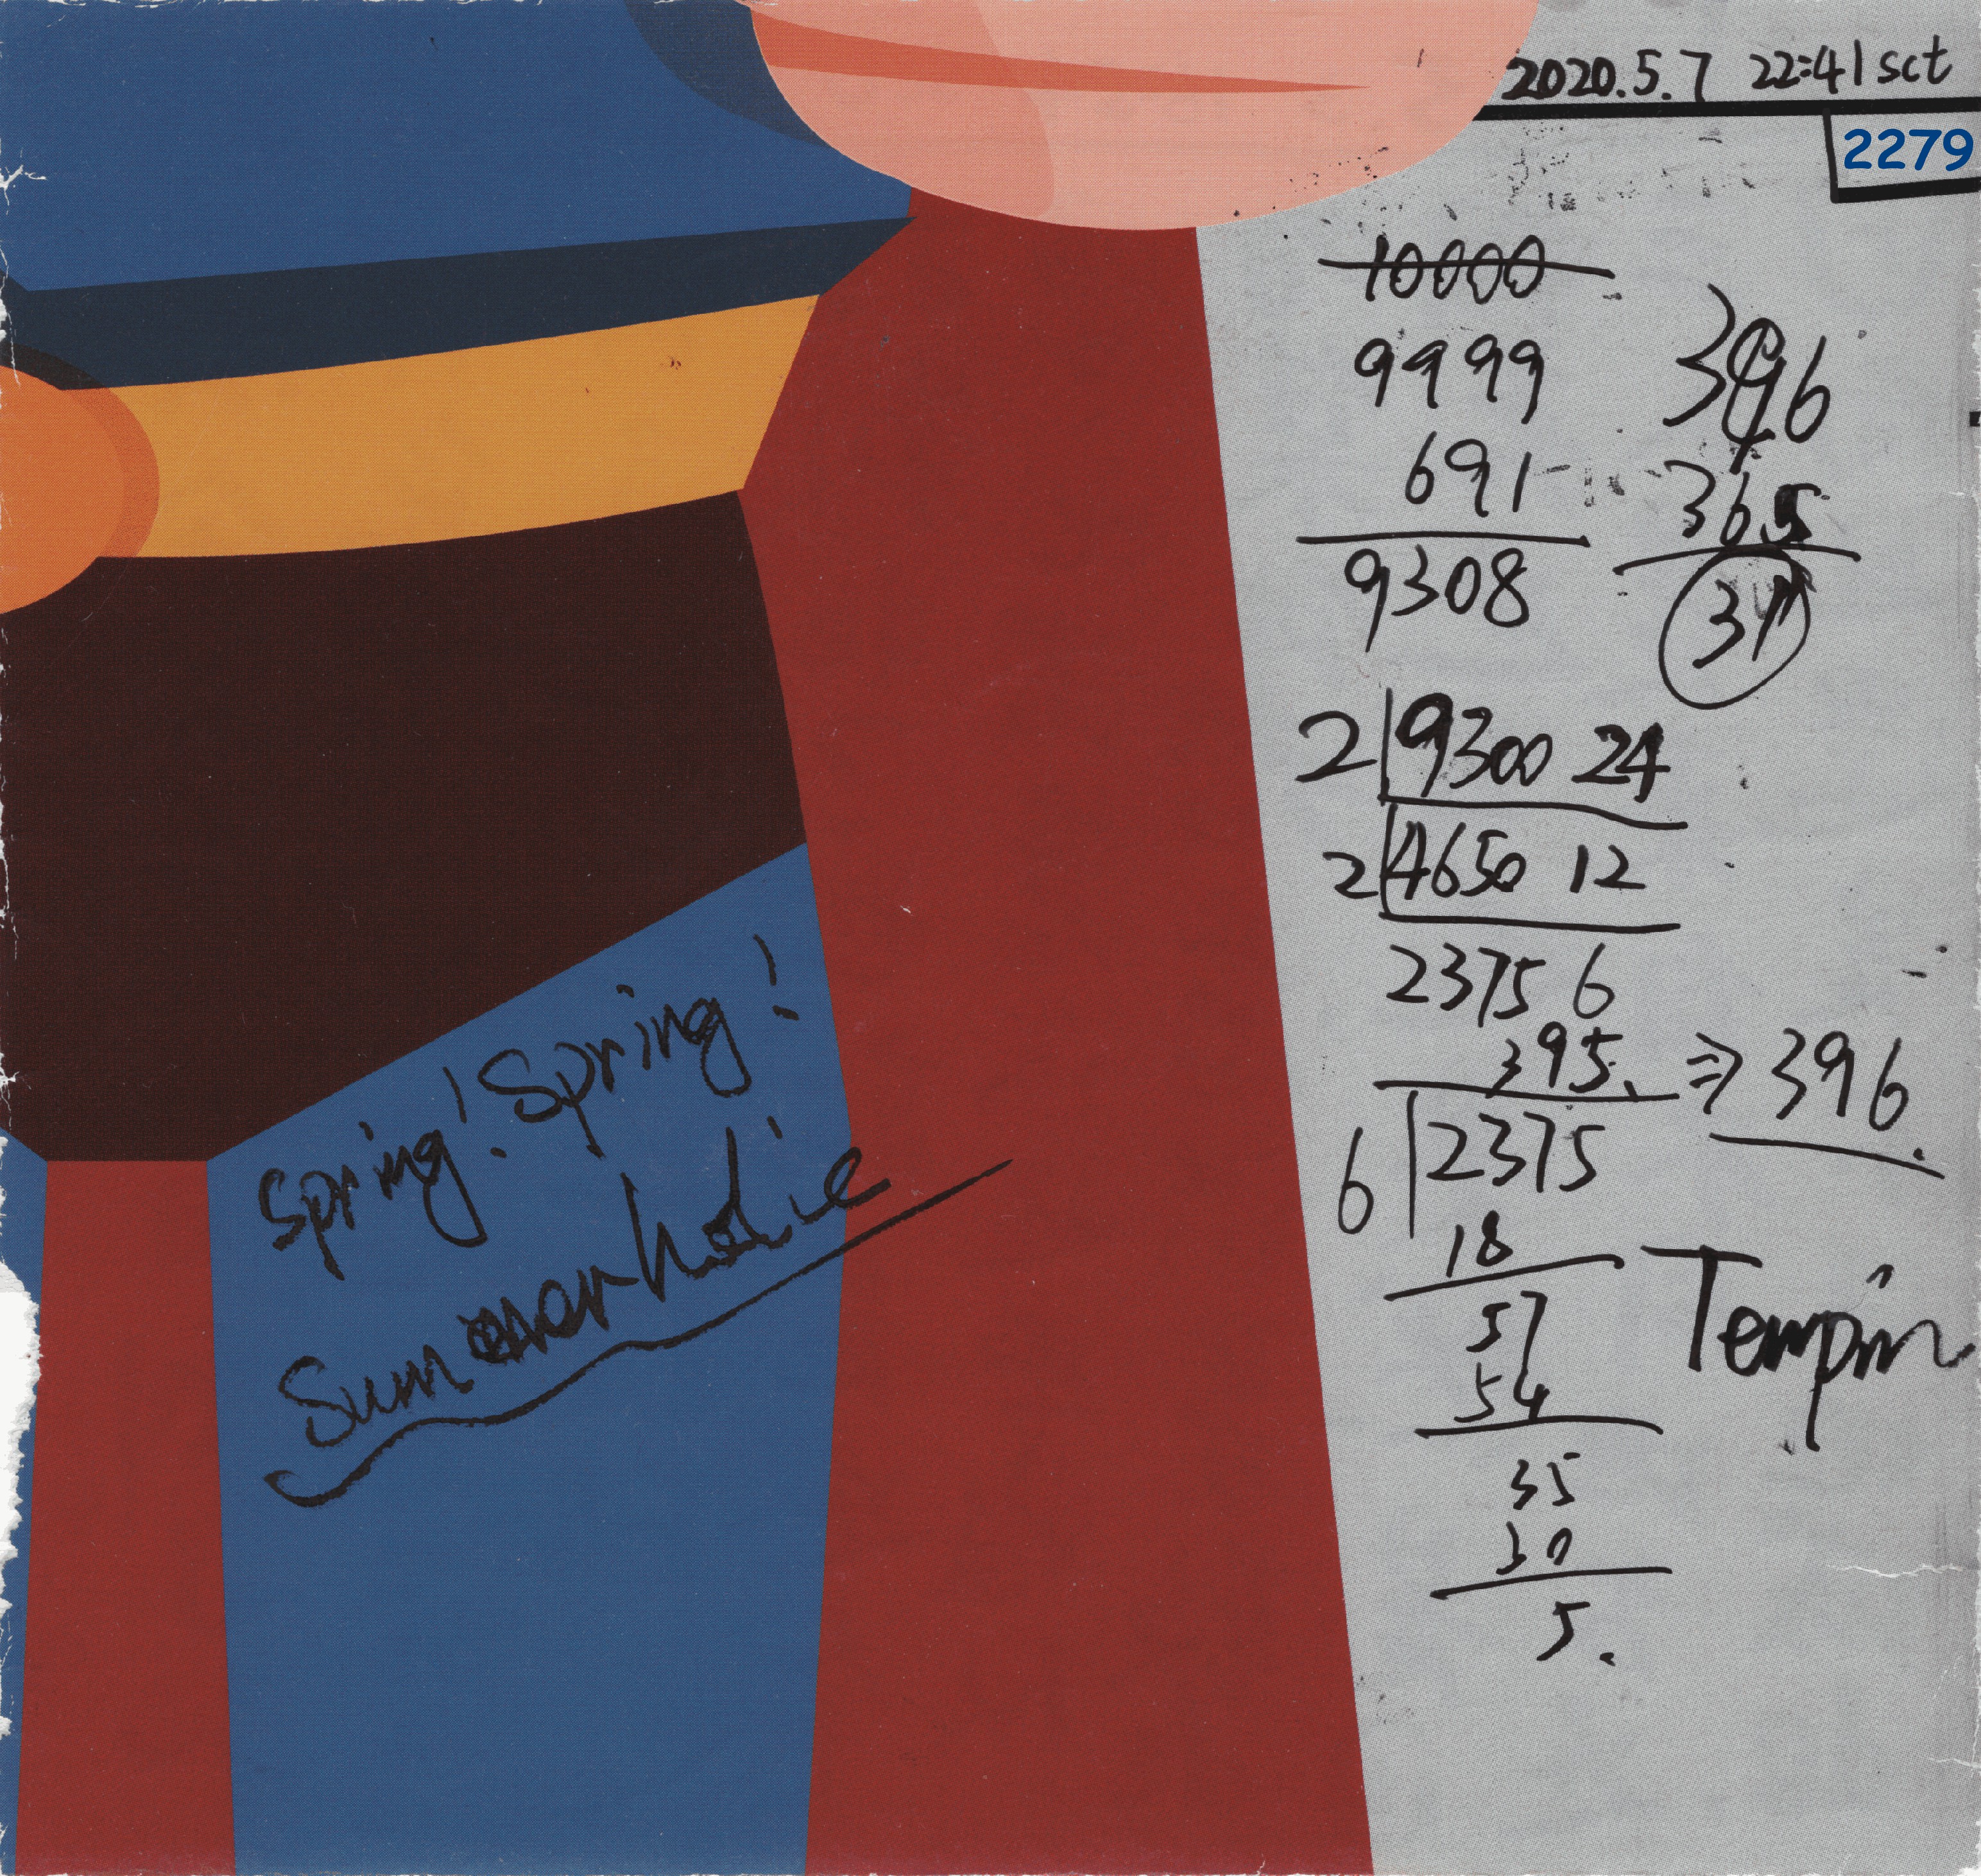 2020.5.7 22:41 sct
2279
10000
9999
691
9308
396
365
31
2 9300 24
2 4650 12
2375 6
395. ⇒ 396.
6 2375
18
57
54
35
30
5.
Spring! Spring!